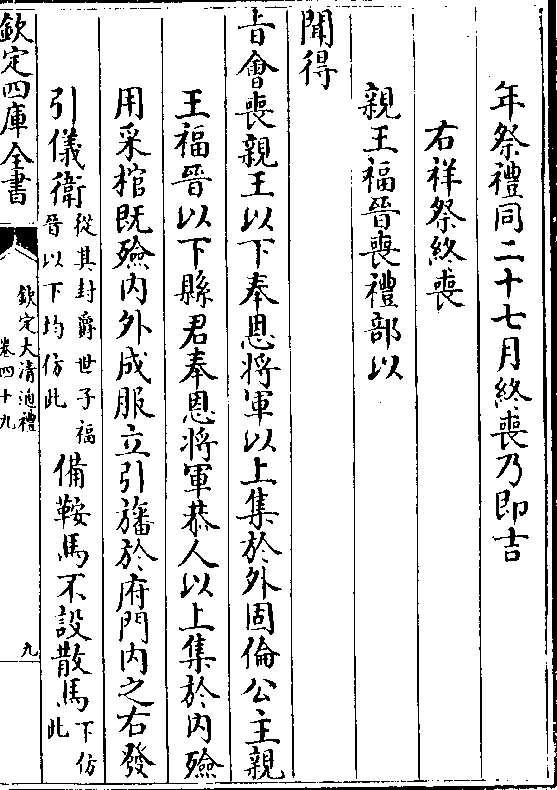 年祭禮同二十七月終喪乃即吉
右祥祭終喪
親王福晉喪禮部以
聞得
旨會喪親王以下奉恩將軍以上集於外固倫公主親
王福晉以下縣君奉恩將軍恭人以上集於內殮
用采棺既殮內外成服立引旛於府門內之右發
引儀衛從其封爵世子福晉以下均仿此備鞍馬不設散馬下仿此
欽定四庫全書
欽定大清通禮
卷四十九
九